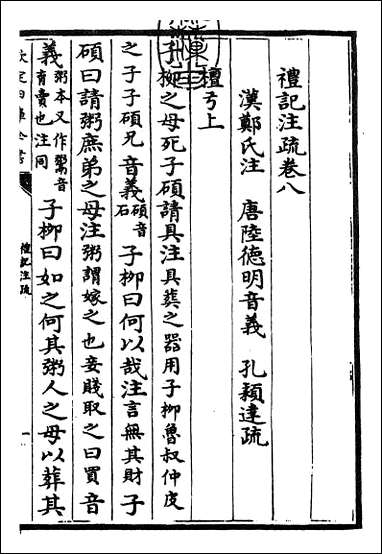 禮記注疏卷八
漢鄭氏注　唐陸德明音義　孔穎達疏
檀弓上
子柳之母死子碩請具注具葬之器用子柳魯叔仲皮
之子子碩兄音義碩音石子柳曰何以哉注言無其財子
碩曰請粥庶弟之母注粥謂嫁之也妾賤取之曰買音
義粥本又作鬻音育賣也注同子柳曰如之何其粥人之母以葬其
欽定四庫全書
禮記注疏
一